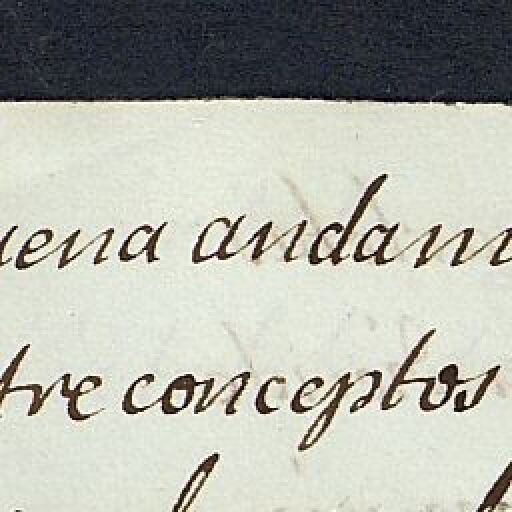 uena andam
tre conceptos